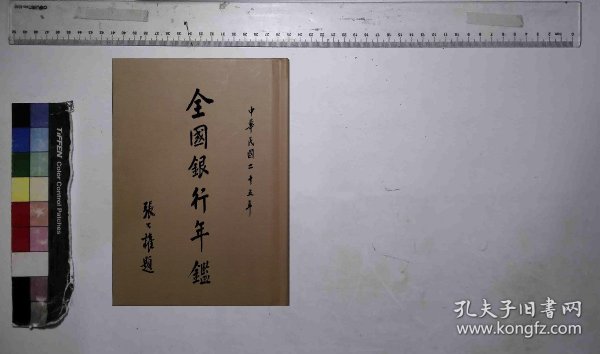 中華民國二十五年
全國銀行年鑑
張公權題
TIFFEN Color Control Patches
孔夫子旧书网
www.kongfz.com